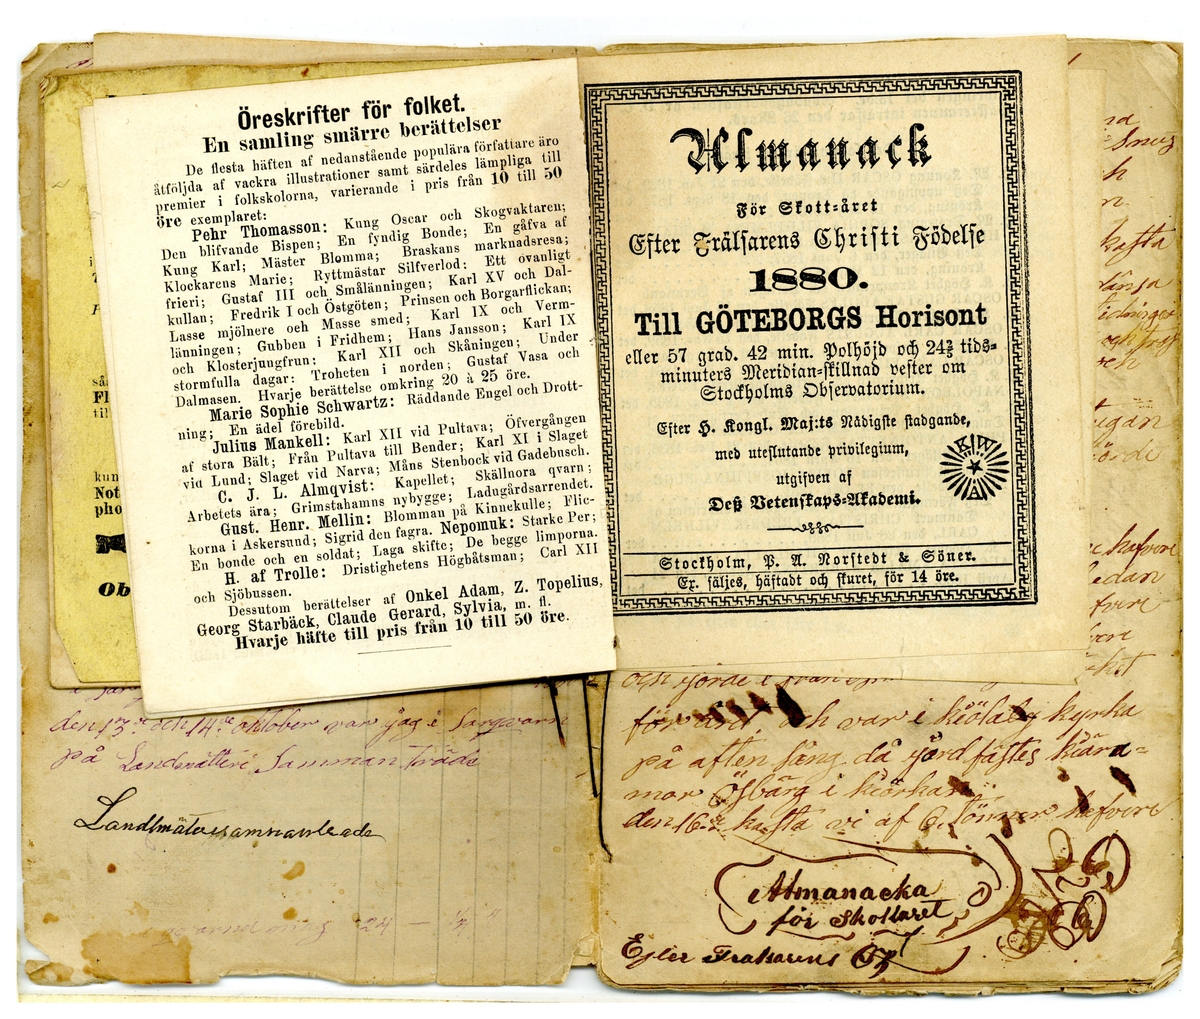 Öreskrifter för folket.
En samling smärre berättelser
De flesta häften af nedanstående populära författare äro
åtföljda af vackra illustrationer samt särdeles lämpliga till
premier i folkskolorna, varierande i pris från 10 till 50
öre exemplaret:
Pehr Thomasson: Kung Oscar och Skogvaktaren;
Den blifvande Bispen; En fyndig Bonde; En gåfva af
Kung Karl; Mäster Blomma; Braskans marknadsresa;
Klockarens Marie; Ryttmästar Silfverlod; Ett ovanligt
frieri; Gustaf III och Smålänningen; Karl XV och Dal-
kullan; Fredrik I och Östgöten; Prinsen och Borgarflickan;
Lasse mjölnere och Masse smed; Karl IX och Verm-
länningen; Gubben i Fridhem; Hans Jansson; Karl IX
och Klosterjungfrun; Karl XII och Skåningen; Under
stormfulla dagar: Troheten i norden; Gustaf Vasa och
Dalmasen. Hvarje berättelse omkring 20 à 25 öre.
Marie Sophie Schwartz: Räddande Engel och Drott-
ning; En ädel förebild.
Julius Mankell: Karl XII vid Pultava; Öfvergången
af stora Bält; Från Pultava till Bender; Karl XI i Slaget
vid Lund; Slaget vid Narva; Måns Stenbock vid Gadebusch.
C. J. L. Almqvist: Kapellet; Skällnora qvarn;
Arbetets ära; Grimstahamns nybygge; Ladugårdsarrendet.
Gust. Henr. Mellin: Blomman på Kinnekulle; Flic-
korna i Askersund; Sigrid den fagra. Nepomuk: Starke Per;
En bonde och en soldat; Laga skifte; De begge limporna.
H. af Trolle: Dristighetens Högbåtsman; Carl XII
och Sjöbussen.
Dessutom berättelser af Onkel Adam, Z. Topelius,
Georg Starbäck, Claude Gerard, Sylvia, m. fl.
Hvarje häfte till pris från 10 till 50 öre.
Almanack
För Skott-året
Efter Frälsarens Christi Födelse
1880.
Till GÖTEBORGS Horisont
eller 57 grad. 42 min. Polhöjd och 24⅔ tids-
minuters Meridian-skillnad vester om
Stockholms Observatorium.
Efter H. Kongl. Maj:ts Nådigste stadgande,
med uteslutande privilegium,
utgifven af
Deß Vetenskaps-Akademi.
K W A
Stockholm, P. A. Norstedt & Söner.
Ex. säljes, häftadt och skuret, för 14 öre.
kun
Not
pho
Ob
den 13de och 14de oktober var jag i
på Landmätteri Samman träde
Landtmäteri
för vård och var i kiölaby kyrka
på aften sång då jordfästes kiära=
mor i kiörkan
den 16de kasta vi af 6 tönner hafvere
Almanacka
för Skottaret
Efter Fralsarens